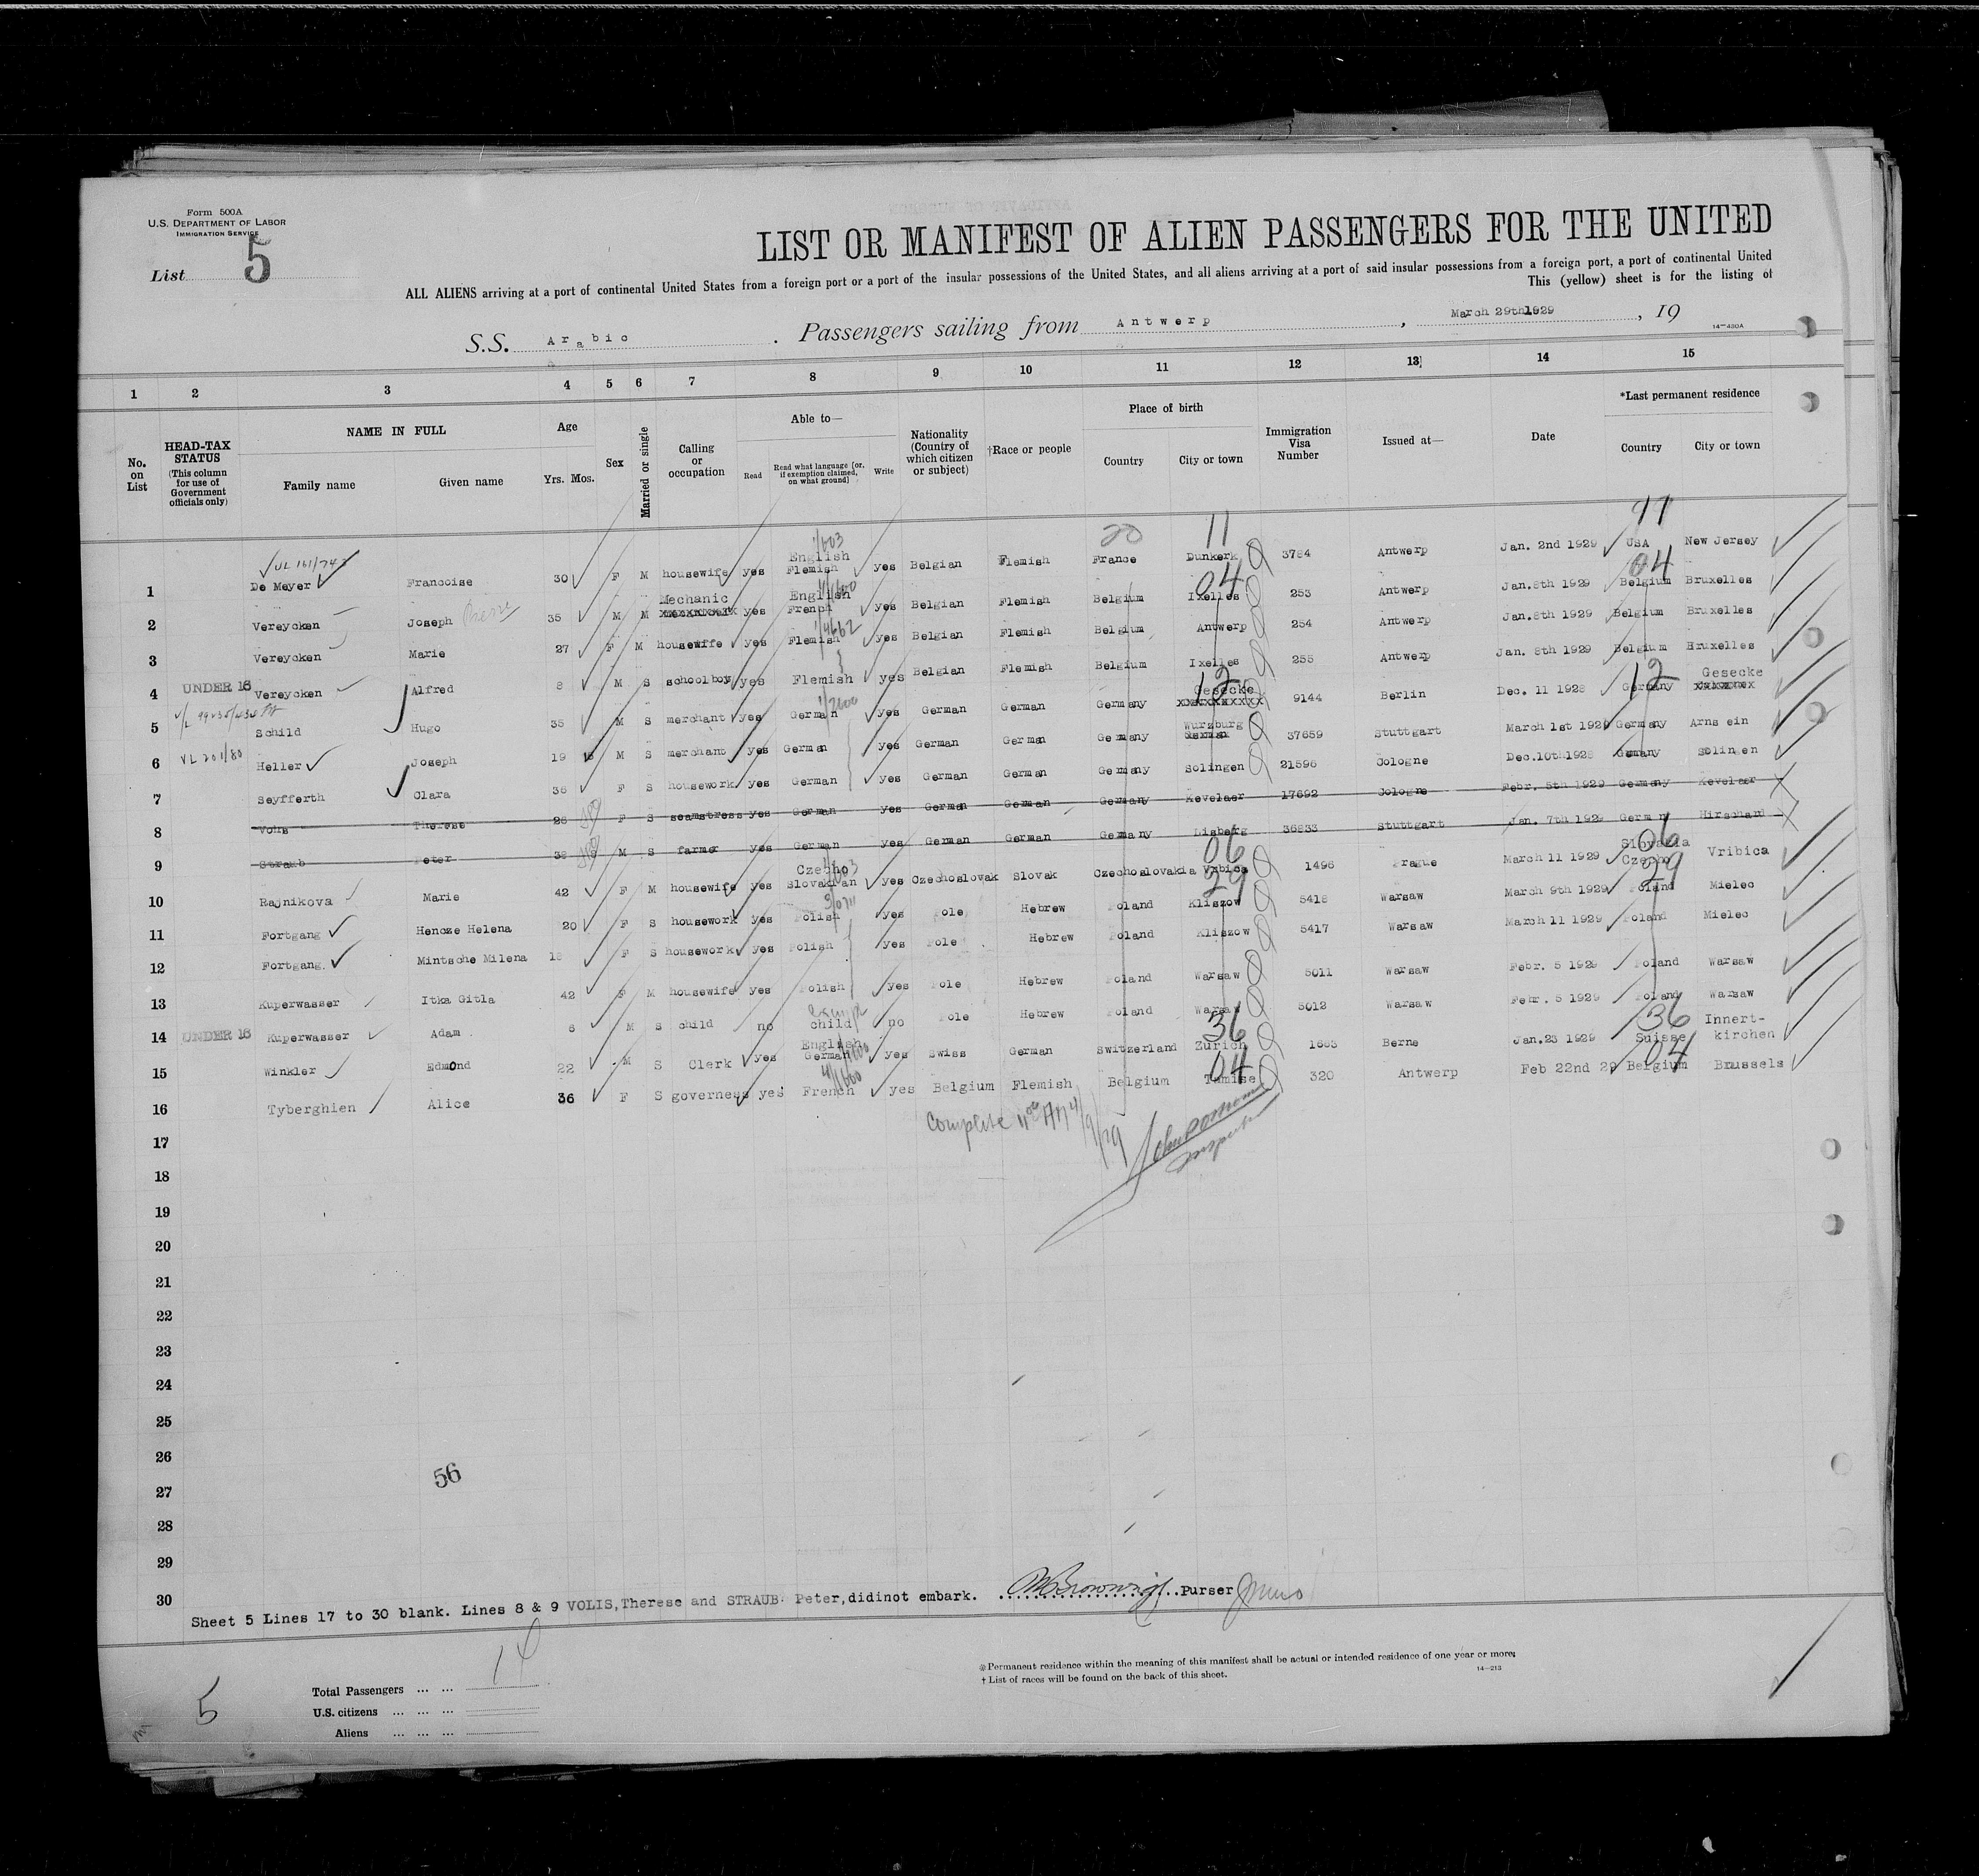 Form 500A
U.S. DEPARTMENT OF LABOR
IMMIGRATION SERVICE
List 5
LIST OR MANIFEST OF ALIEN PASSENGERS FOR THE UNITED
ALL ALIENS arriving at a port of continental United States from a foreign port or a port of the insular possessions of the United States, and all aliens arriving at a port of said insular possessions from a foreign port, a port of continental United
This (yellow) sheet is for the listing of
S.S. Arabic . Passengers sailing from Antwerp , March 29th1929 , 19
14—430A
1 2 3 4 5 6 7 8 9 10 11 12 13 14 15
No. on List
HEAD-TAX STATUS (This column for use of Government officials only)
NAME IN FULL
Family name Given name
Age
Yrs. Mos.
Sex
Married or single
Calling or occupation
Able to—
Read
Read what language [or, if exemption claimed, on what ground]
Write
Nationality (Country of which citizen or subject)
†Race or people
Place of birth
Country City or town
Immigration Visa Number
Issued at—
Date
*Last permanent residence
Country City or town
1 De Meyer Francoise 30 F M housewife yes English Flemish yes Belgian Flemish France Dunkerk 3784 Antwerp Jan. 2nd 1929 USA New Jersey
2 Vereycken Joseph Pierre 35 M M Mechanic yes English French yes Belgian Flemish Belgium Ixelles 253 Antwerp Jan.8th 1929 Belgium Bruxelles
3 Vereycken Marie 27 F M housewife yes Flemish yes Belgian Flemish Belgium Antwerp 254 Antwerp Jan.8th 1929 Belgium Bruxelles
4 UNDER 16 Vereycken Alfred 8 M S schoolboy yes Flemish yes Belgian Flemish Belgium Ixelles 255 Antwerp Jan. 8th 1929 Belgium Bruxelles
5 Schild Hugo 35 M S merchant yes German yes German German Germany Gesecke 9144 Berlin Dec. 11 1928 Germany Gesecke
6 VL 201/80 Heller Joseph 19 M S merchant yes German yes German German Germany Wurzburg 37659 Stuttgart March 1st 1929 Germany Arns ein
7 Seyfferth Clara 36 F S housework yes German yes German German Germany Solingen 21596 Cologne Dec.10th1928 Germany Solingen
8 Vohs Therese 26 F S seamstress yes German yes German German Germany Kevelaer 17692 Cologne Febr. 5th 1929 Germany Kevelaer
9 Straub Peter 38 M S farmer yes German yes German German Germany Lisberg 36833 Stuttgart Jan. 7th 1929 Germany Hirschard
10 Rajnikova Marie 42 F M housewife yes Czecho Slovakian yes Czechoslovak Slovak Czechoslovakia Vrbica 1496 Prague March 11 1929 Slovakia Czecho Vribica
11 Fortgang Hencze Helena 20 F S housework yes Polish yes Pole Hebrew Poland Kliszow 5418 Warsaw March 9th 1929 Poland Mielec
12 Fortgang Mintsche Milena 18 F S housework yes Polish yes Pole Hebrew Poland Kliszow 5417 Warsaw March 11 1929 Poland Mielec
13 Kuperwasser Itka Gitla 42 F M housewife yes Polish yes Pole Hebrew Poland Warsaw 5011 Warsaw Febr. 5 1929 Poland Warsaw
14 UNDER 16 Kuperwasser Adam 6 M S child no child no Pole Hebrew Poland Warsaw 5012 Warsaw Febr. 5 1929 Poland Warsaw
15 Winkler Edmond 22 M S Clerk yes English German yes Swiss German Switzerland Zurich 1683 Berne Jan.23 1929 Suisse Innert-kirchen
16 Tyberghien Alice 36 F S governess yes French yes Belgium Flemish Belgium Tamise 320 Antwerp Feb 22nd 29 Belgium Brussels
Complete
17
18
19
20
21
22
23
24
25
26
56
27
28
29
30
Sheet 5 Lines 17 to 30 blank. Lines 8 & 9 VOLIS,Therese and STRAUB Peter,didinot embark. Purser
Total Passengers ... ... 14
U.S. citizens ... ... ...
Aliens ... ... ...
5
*Permanent residence within the meaning of this manifest shall be actual or intended residence of one year or more.
† List of races will be found on the back of this sheet.
14—213